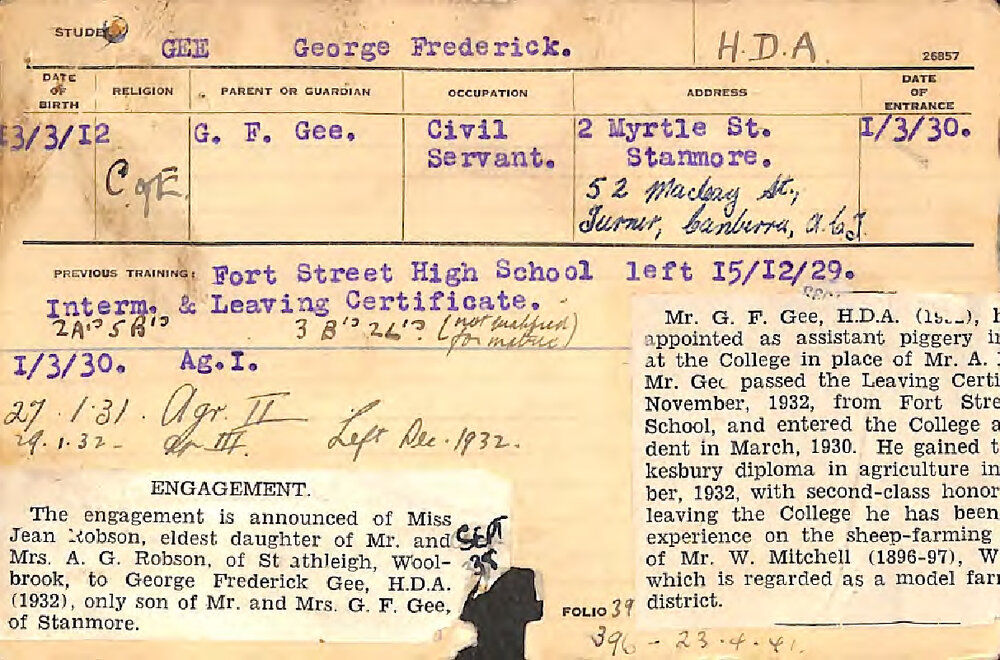 STUDE
GEE George Frederick. H.D.A. 26857
DATE OF BIRTH RELIGION PARENT OR GUARDIAN OCCUPATION ADDRESS DATE OF ENTRANCE
13/3/12 G. F. Gee. Civil Servant. 2 Myrtle St. Stanmore. 1/3/30.
C of E.
52 Macleay St.,
Turner, Canberra, A.C.T.
PREVIOUS TRAINING: Fort Street High School left 15/12/29.
Interm. & Leaving Certificate.
2A's 5B's 3 B's 2L's (not matified for matric)
1/3/30. Ag.I.
27.1.31. Agr. II
29.1.32- III. Left Dec. 1932.
ENGAGEMENT.
The engagement is announced of Miss
Jean Robson, eldest daughter of Mr. and
Mrs. A. G. Robson, of St athleigh, Wool-
brook, to George Frederick Gee, H.D.A.
(1932), only son of Mr. and Mrs. G. F. Gee,
of Stanmore.
SEPT
38
Mr. G. F. Gee, H.D.A.
appointed as assistant piggery
at the College in place of Mr. A.
Mr. Gee passed the Leaving Certi
November, 1932, from Fort Stre
School, and entered the College a
dent in March, 1930. He gained t
kesbury diploma in agriculture in
ber, 1932, with second-class honor
leaving the College he has been
experience on the sheep-farming
of Mr. W. Mitchell (1896-97), W
which is regarded as a model far
district.
FOLIO 39
396 - 23.4.41.